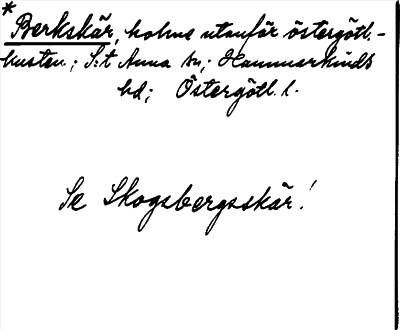 * Berkskär, holme utanför östergötl.-
kusten; S:t Anna sn; Hammarkinds
hd; Östergötl. l.
Se Skogsbergsskär!